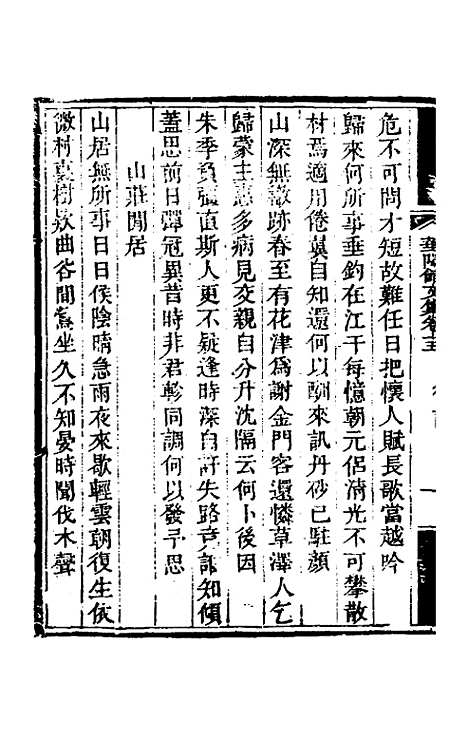 危不可問才短故難任日把懷人賦長歌當越吟
歸來何所事垂釣在江干每憶朝元侶清光不可攀散
材焉適用倦翼自知還何以酬來訊丹砂已駐顏
山深無轍跡春至有花津爲謝金門客還憐草澤人乞
歸蒙主惠多病見交親自分升沈隔云何卜後因
朱季負張値斯人更不疑逢時深自許失路知傾
蓋思前日彈冠異昔時非君軫同調何以發予思
山莊閒居
山居無所事日日候陰晴急雨夜來歇輕雲朝復生依
微村裏樹欵曲谷間鶯坐久不知晏時聞伐木聲